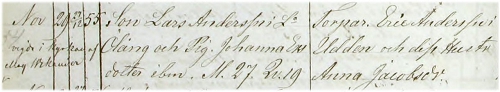 Nov 29 55 Son Lars Andersson i Torpar. Eric Andersson i
vigde i Kyrkan af Öläng och Pig. Johanna Ers Uddden och dess Hustru
Mag Wekander dotter ibm. M. 27. Qu. 19 Anna Jacobsdr.